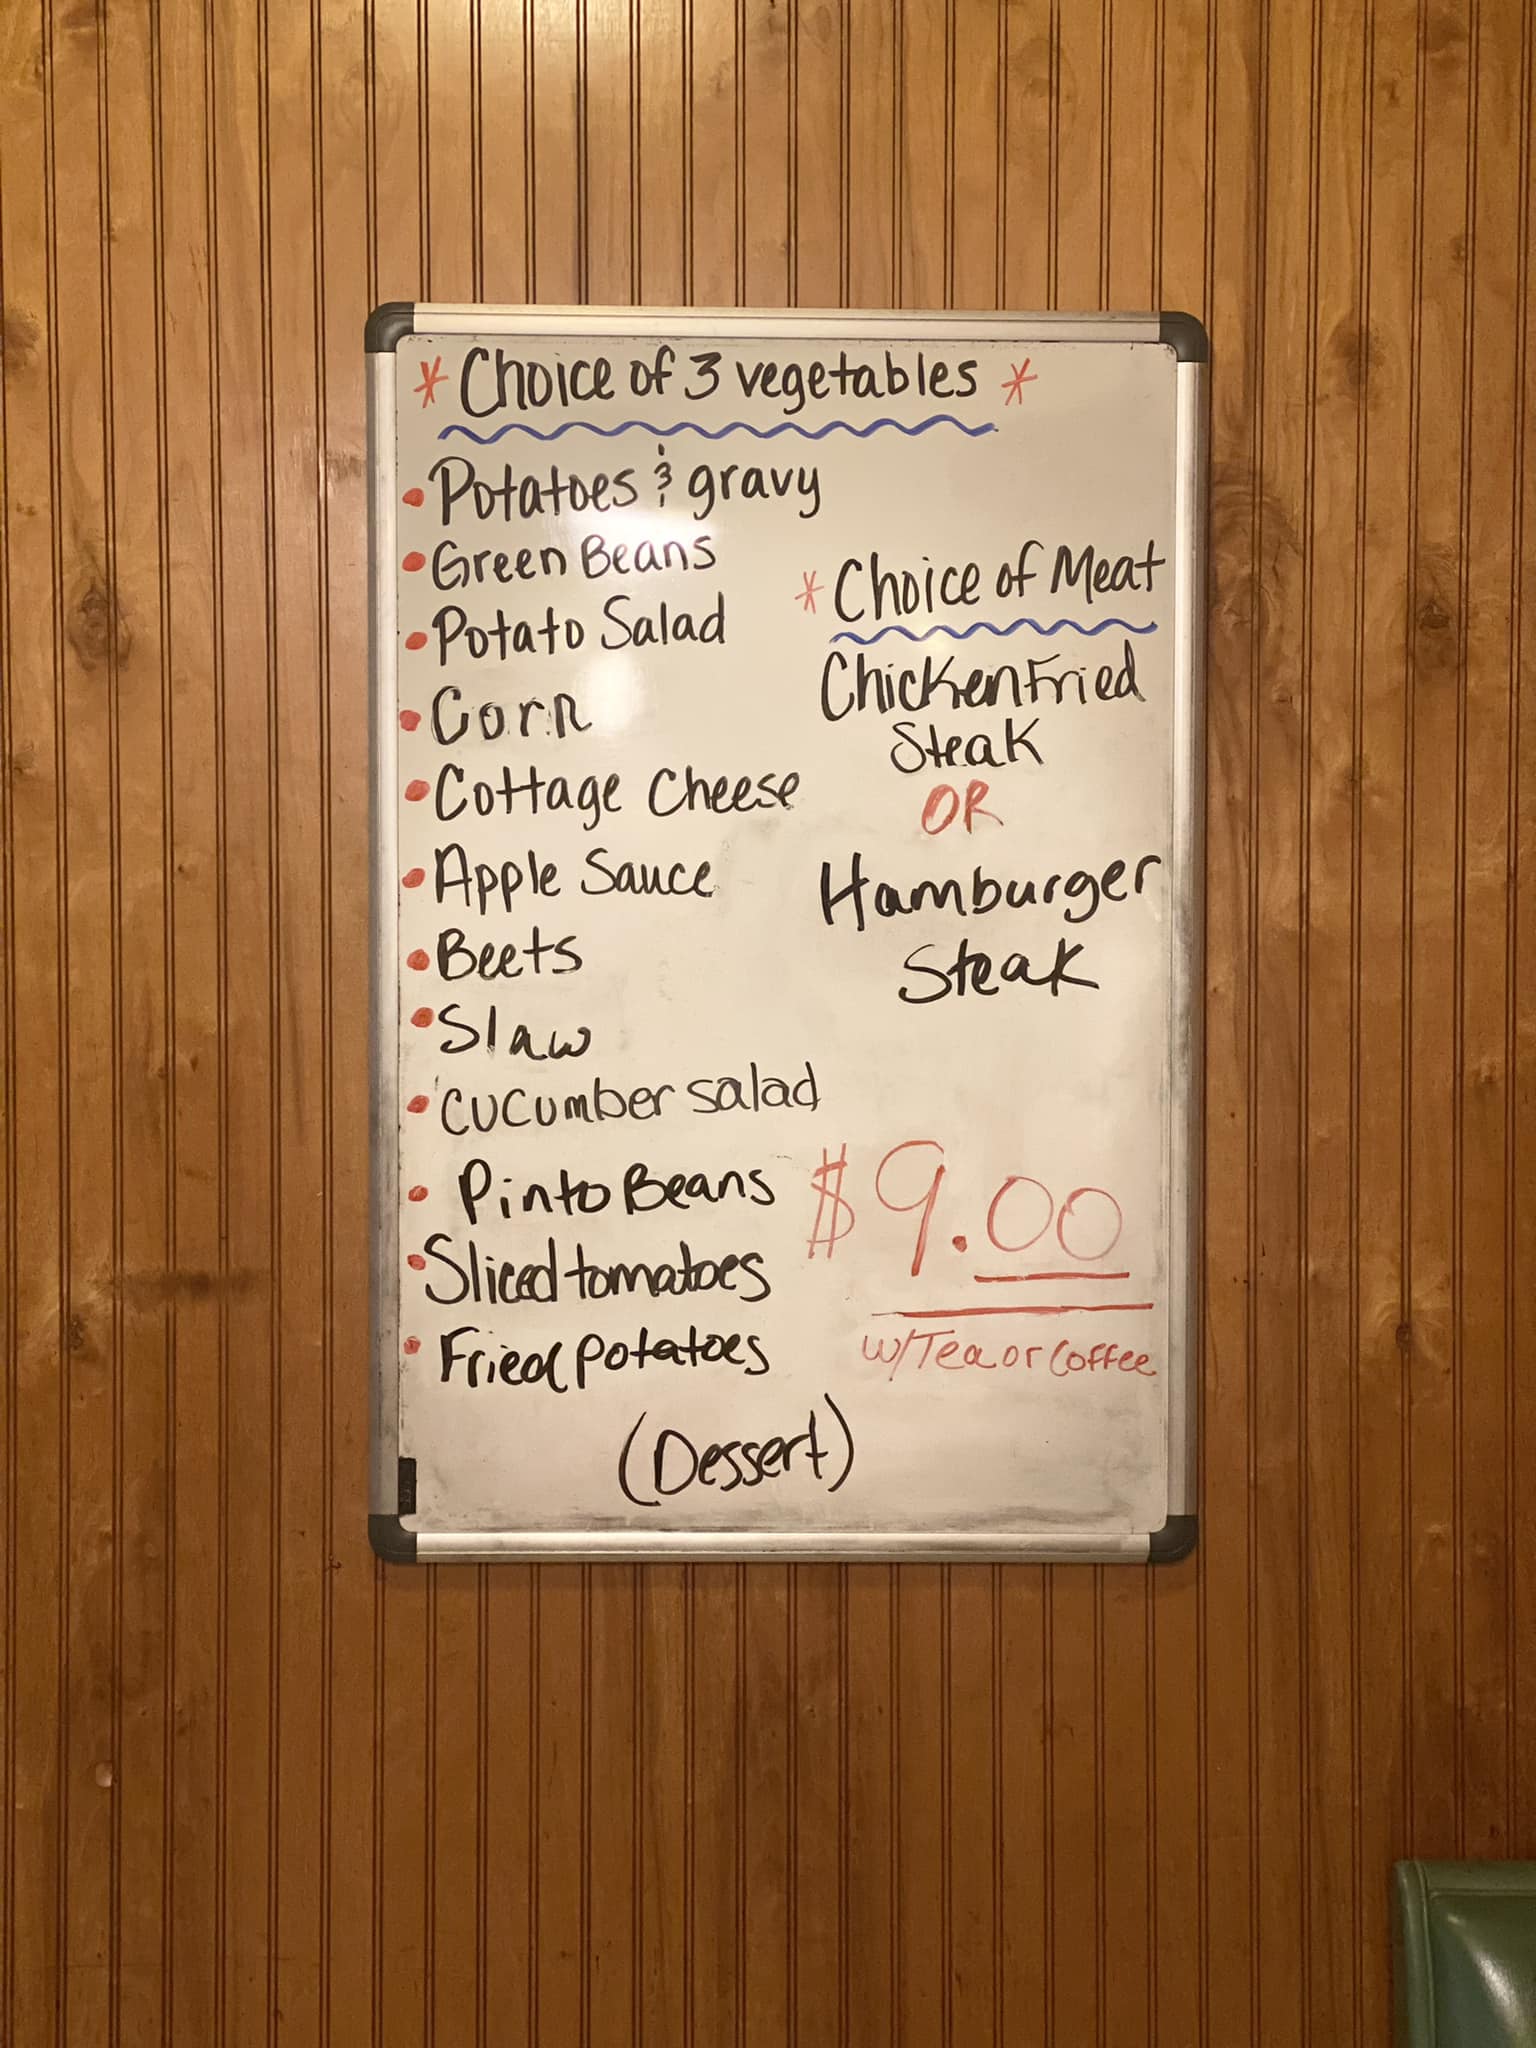 * Choice of 3 vegetables *
• Potatoes & gravy
• Green Beans
• Potato Salad
• Corn
• Cottage Cheese
• Apple Sauce
• Beets
• Slaw
• cucumber salad
• Pinto Beans
• Sliced tomatoes
• Fried potatoes
(Dessert)
* Choice of Meat
Chicken Fried
Steak
OR
Hamburger
Steak
$9.00
w/Tea or Coffee